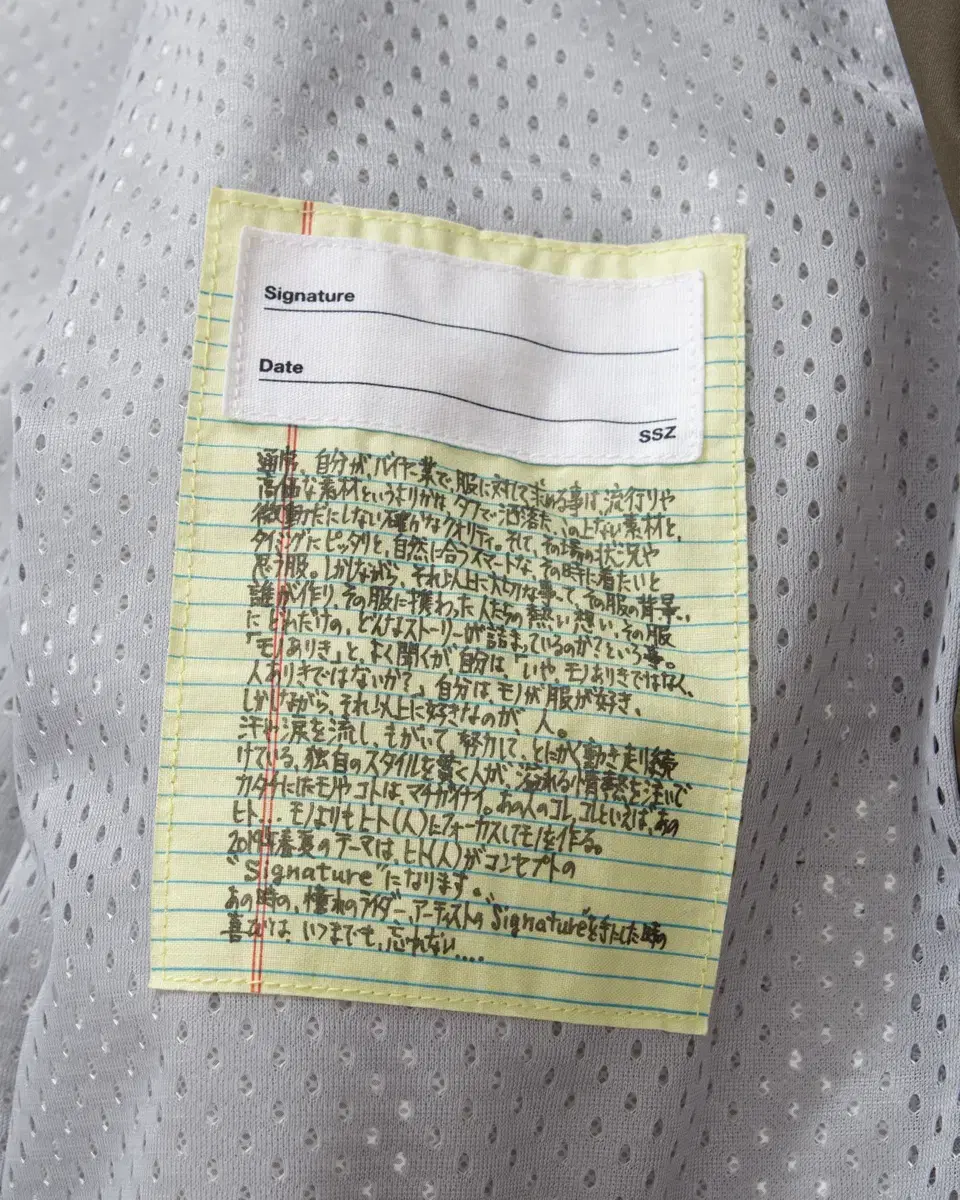 Signature
Date
SSZ
通常、自分がバイヤー業で、服に対して求める事は、流行りや
高価な素材というよりかは、タフで洒落た、この上ない素材と、
微動だにしない確かなクオリティ。そして、その場の状況や
タイミングにピッタリと、自然に合うスマートな、その時に着たいと
思う服。しかしながら、それ以上に大切な事って、その服の背景、
誰が作り、その服に携わった人たちの熱い想い、その服
にどれだけの、どんなストーリーが詰まっているのか?という事。
「モノありき」と、よく聞くが、自分は「いや、モノありきではなく、
人ありきではないか?」自分は、モノが服が好き、
しかしながら、それ以上に好きなのが、人。
汗や涙を流し、もがいて、努力して、とにかく動き走り続
けている、独自のスタイルを貫く人が、溢れる情熱を注いで
カタチにしたモノやコトは、マチガイナイ。あの人のコレ、コレといえば、あの
ヒト...モノよりもヒト(人)にフォーカスしてモノを作る。
2019年春夏のテーマは、ヒト(人)がコンセプトの
"Signature"になります。
あの時の、憧れのライダー、アーティストの"Signature"を手にした時の
喜びは、いつまでも、忘れない....